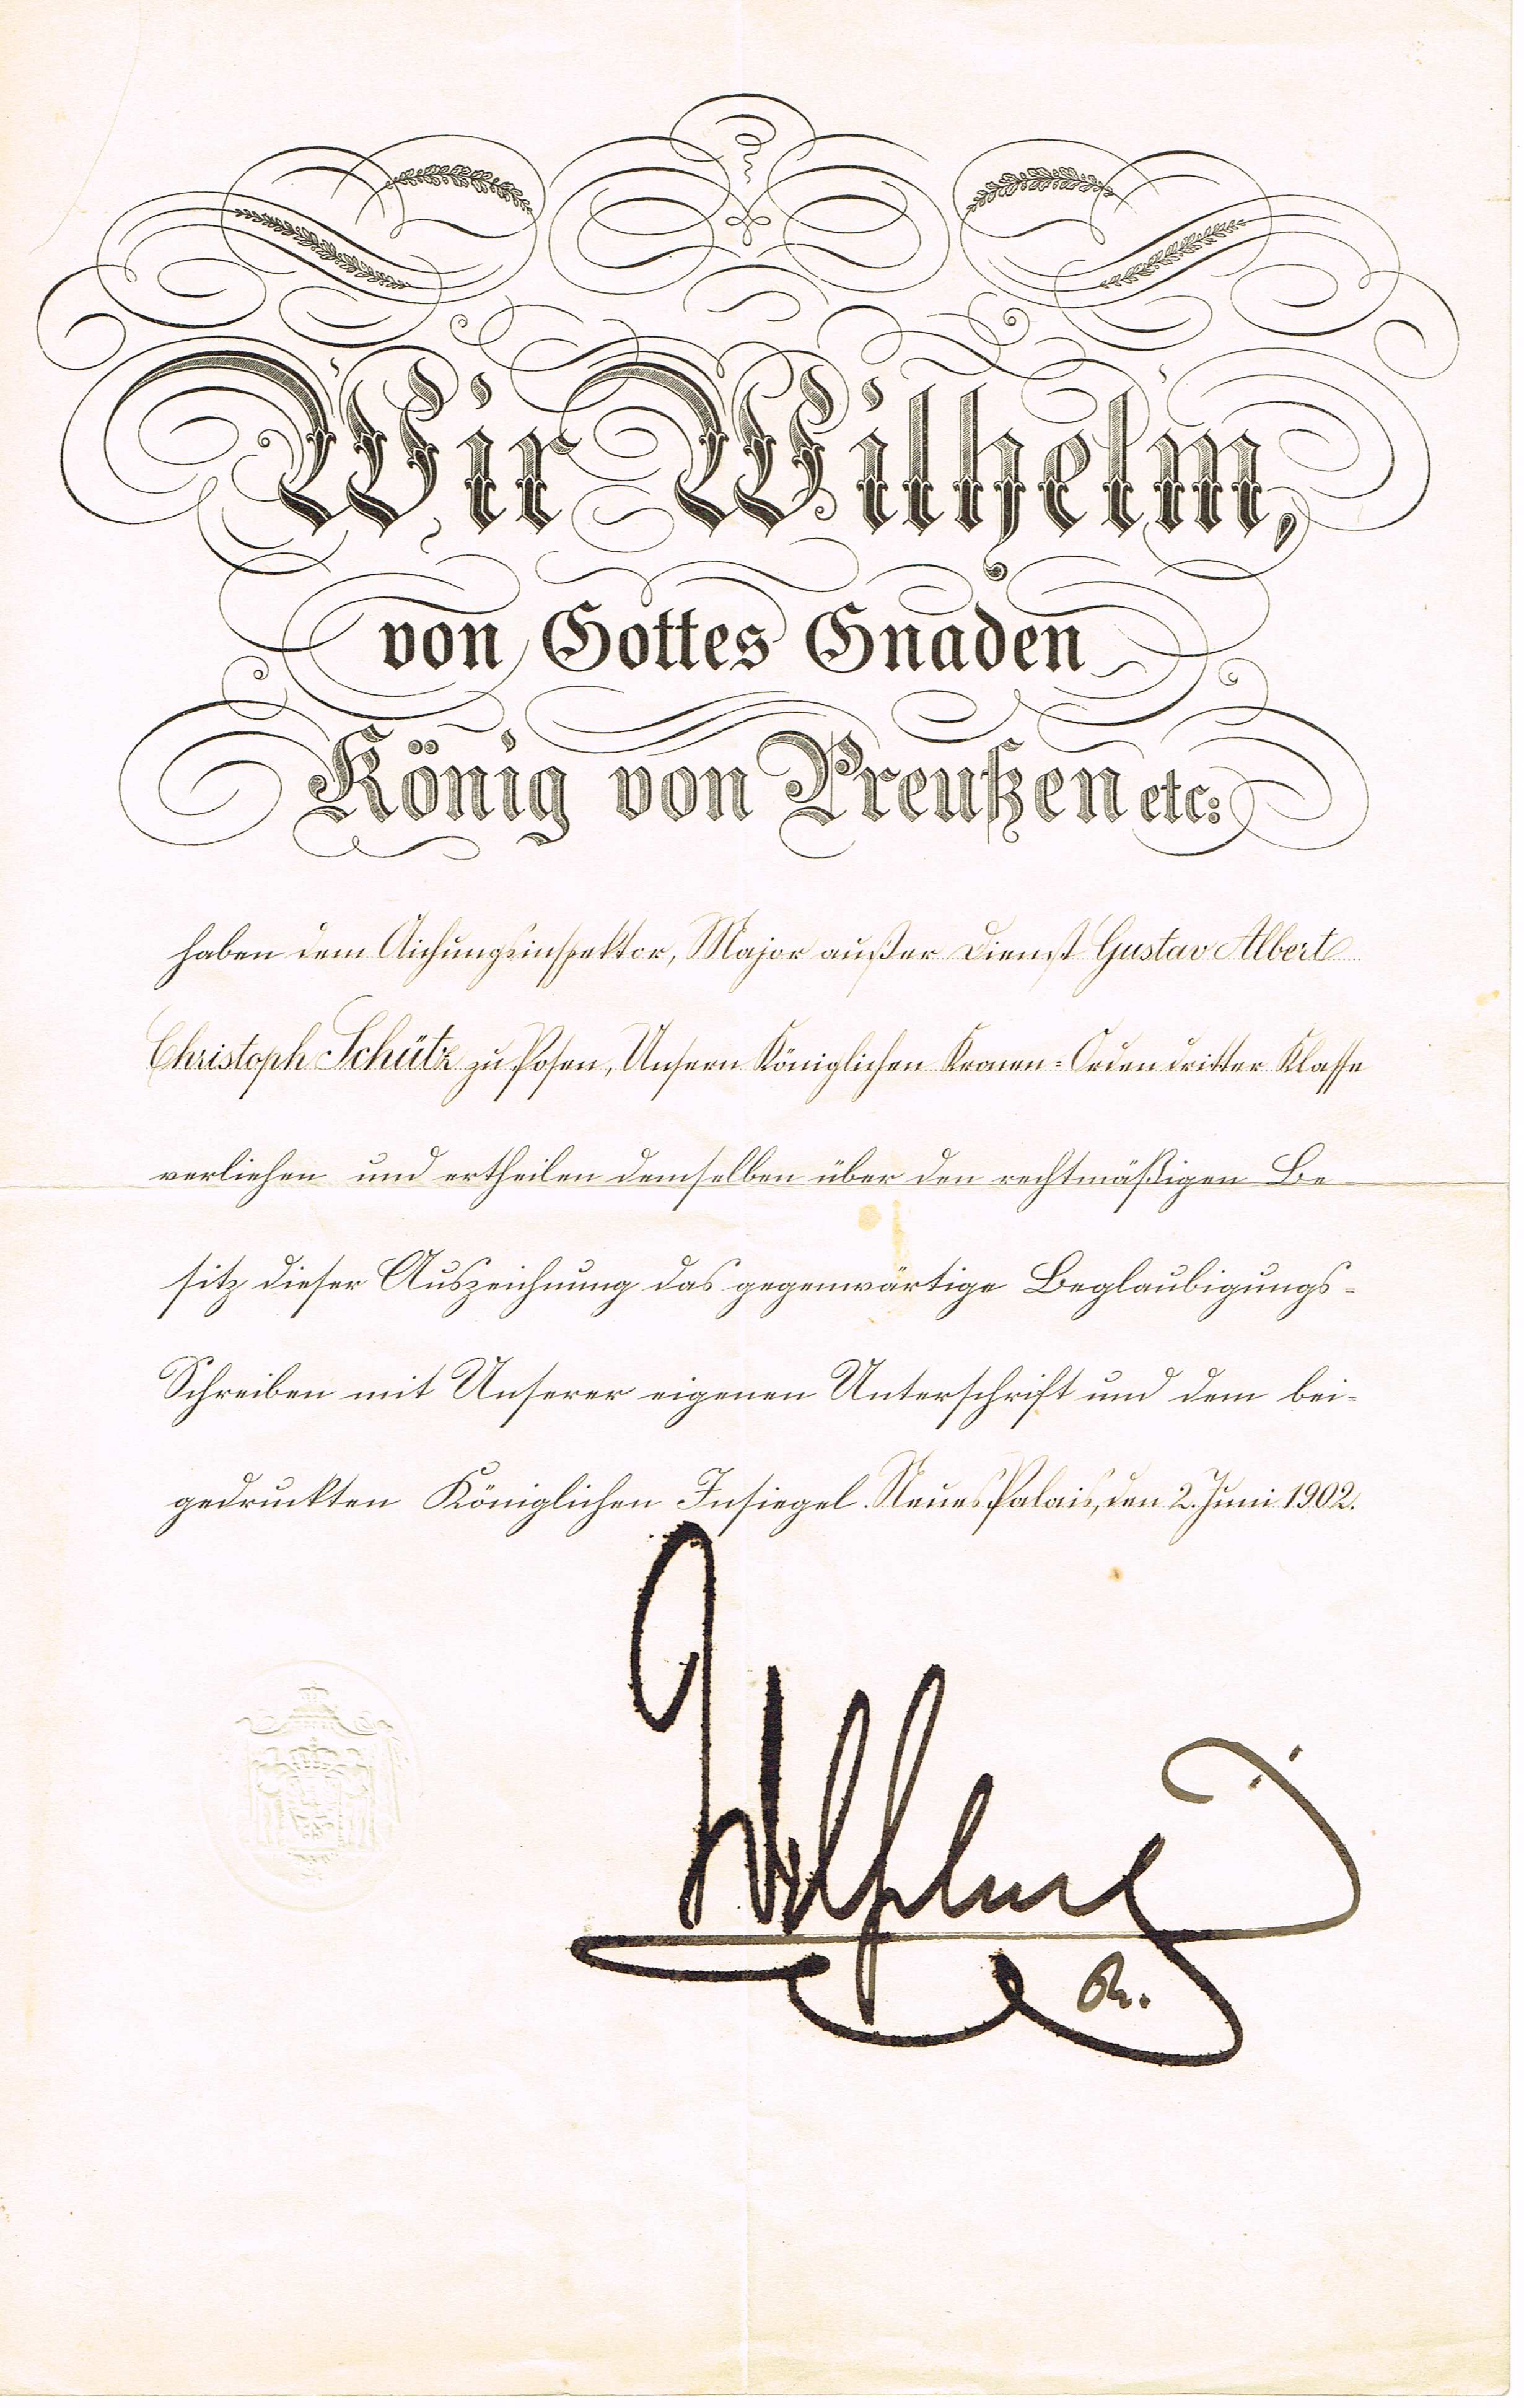 Wir Wilhelm,
von Gottes Gnaden
König von Preußen etc:
haben dem Aichungsinspektor, Major außer Dienst Gustav Albert
Christoph Schütz zu Posen, Unsern Königlichen Kronen=Orden dritter Klasse
verliehen und ertheilen demselben über den rechtmäßigen Be
sitz dieser Auszeichnung das gegenwärtige Beglaubigungs=
Schreiben mit Unserer eigenen Unterschrift und dem bei=
gedruckten Königlichen Insiegel. Neues Palais, den 2. Juni 1902.
Wilhelm
R.